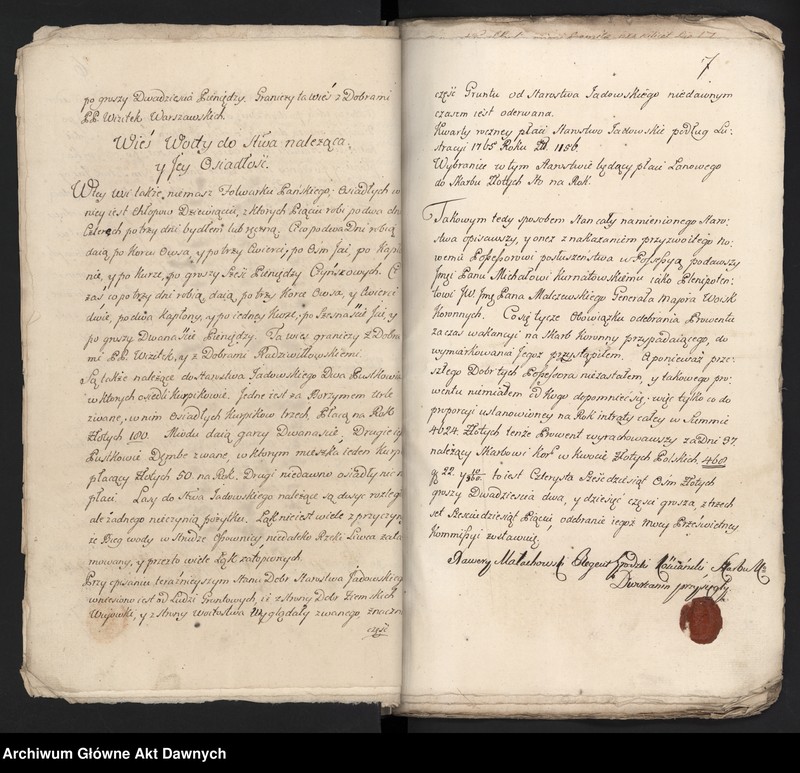 po groszy Dwadzieścia Pieniędzy. Graniczy ta wieś z Dobrami
PP. Wizytek Warszawskich.
Wieś Wody do Stwa należąca,
y Jey Osiadłość.
W tey wsi także niemasz Folwarku Pańskiego: Osiadłych w
niey iest Chłopow Dziewięciu, z ktorych Pięciu robi po dwa dni
Czterech po trzy dni bydłem lub ręczną. Ci co po dwa Dni robią
daią po Korcu Owsa, y po trzy Ćwierci, po Ośm Jai, po Kapło
nie, y po Kurze, po groszy Sześć Pieniędzy Czynszowych. Ci
zaś co po trzy dni robią, daią po trzy Korce Owsa, y Cwierci
dwie, po dwa Kapłony, y po iedney Kurze, po Szesnaście Jai, y
po groszy Dwanaście Pieniędzy. Ta wieś graniczy z Dobra
mi PP. Wizytek, y z Dobrami Radziwiłłowskiemi.
Są także należące do Starostwa Jadowskiego Dwa Pustkowia
w ktorych osiedli Kurpikowie. Jedne iest za Borzymem
zwane, w nim Osiadłych Kurpikow trzech, Płacą na Rok
Złotych 100. Miodu daią garcy Dwanaście, Drugie
Pustkowie Dembe zwane, w ktorym mieszka ieden Kurpik
płacący Złotych 50. na Rok. Drugi niedawno osiadły nie
płaci. Lasy do Stwa Jadowskiego należące są dosyć rozległe
ale żadnego nieczynią pożytku. Łąk nie iest wiele z przyczyny
że Bieg wody w Strudze Osownicy niedaleko Rzeki Liwca zata
mowany, y przez to wiele Łąk zatopionych.
Przy opisaniu teraźnieyszym Stanu Dobr Starostwa Jadowskiego
wniesiono iest od Ludzi Gruntowych, iż z strony Dobr Ziemskich
Wujowki, y z strony Woitostwa Wyglądały zwanego, znaczna
część
7
część Gruntu od Starostwa Jadowskiego niedawnym
czasem iest oderwana.
Kwarty roczney płaci Starostwo Jadowskie podług Lu:
stracyi 1765 Roku Zł. 1156.
Wybraniec w tym Starostwie będący płaci Łanowego
do Skarbu Złotych Sto na Rok.
Takowym tedy sposobem Stan cały namienionego Staro:
stwa opisawszy, y onez z nakazaniem przyzwoitego No:
wemu Possessorowi posłuszeństwa w Possessyą podawszy
Jmci Panu Michałowi Kurnatowskiemu iako Plenipoten:
towi JW. Jmci Pana Malczewskiego Generała Majora Woisk
Koronnych. Co się tycze Obowiązku odebrania Prowentu
za czas wakansyi na Skarb Koronny przypadaiącego, do
wymiarkowania Jegoż przystąpiłem. A ponieważ prze:
szłego Dobr tych Possessora niezastałem, y takowego pro:
wentu niemiałem od kogo depomnieć się: więc tylko co do
proporcyi ustanowioney na Rok intraty całey w Summie
4624. Złotych tenże Prowent wyrachowawszy za Dni 37.
należący Skarbowi Kor: w kwocie Złotych Polskich, 468
gr 22. y 10/365. to iest Czterysta Sześćdziesiąt Ośm Złotych
groszy Dwadzieścia dwa, y dziesięć części grosza, z trzech
set Sześćdziesiąt Pięciu, odebranie iegoż mocy Prześwietney
Kommissyi zostawuię.
Xawery Małachowski Regent Grodzki Skarbu
Dworzanin przysięgły.
Archiwum Główne Akt Dawnych